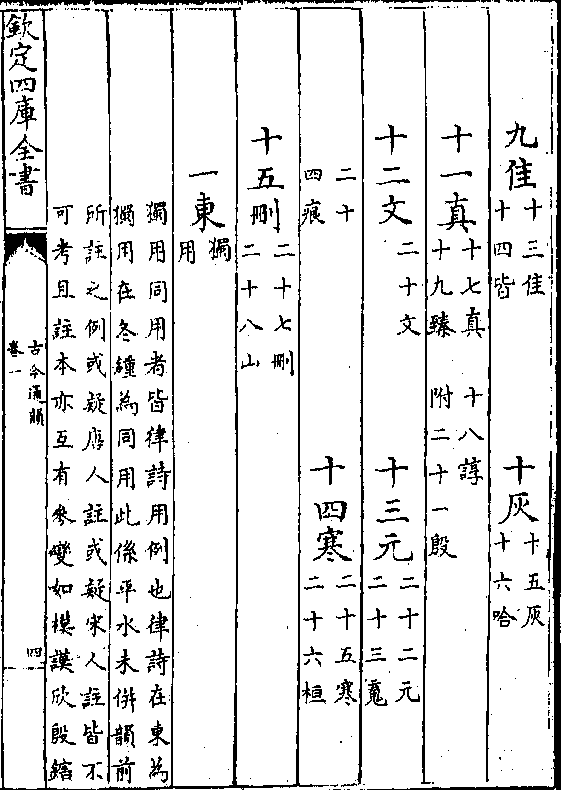 九佳
十三佳
十四皆
十灰
十五灰
十六咍
十一真
十七真 十八諄
十九臻 附二十一殷
十二文
二十文
十三元
二十二元
二十三䰟
二十
四痕
十四寒
二十五寒
二十六桓
十五刪
二十七刪
二十八山
一東
獨
用
獨用同用者皆律詩用例也律詩在東為
獨用在冬鍾為同用此係平水未併韻前
所註之例或疑唐人註或疑宋人註皆不
可考且註本亦互有參變如模謨欣殷鎋
欽定四庫全書
古今通韻
卷一
四